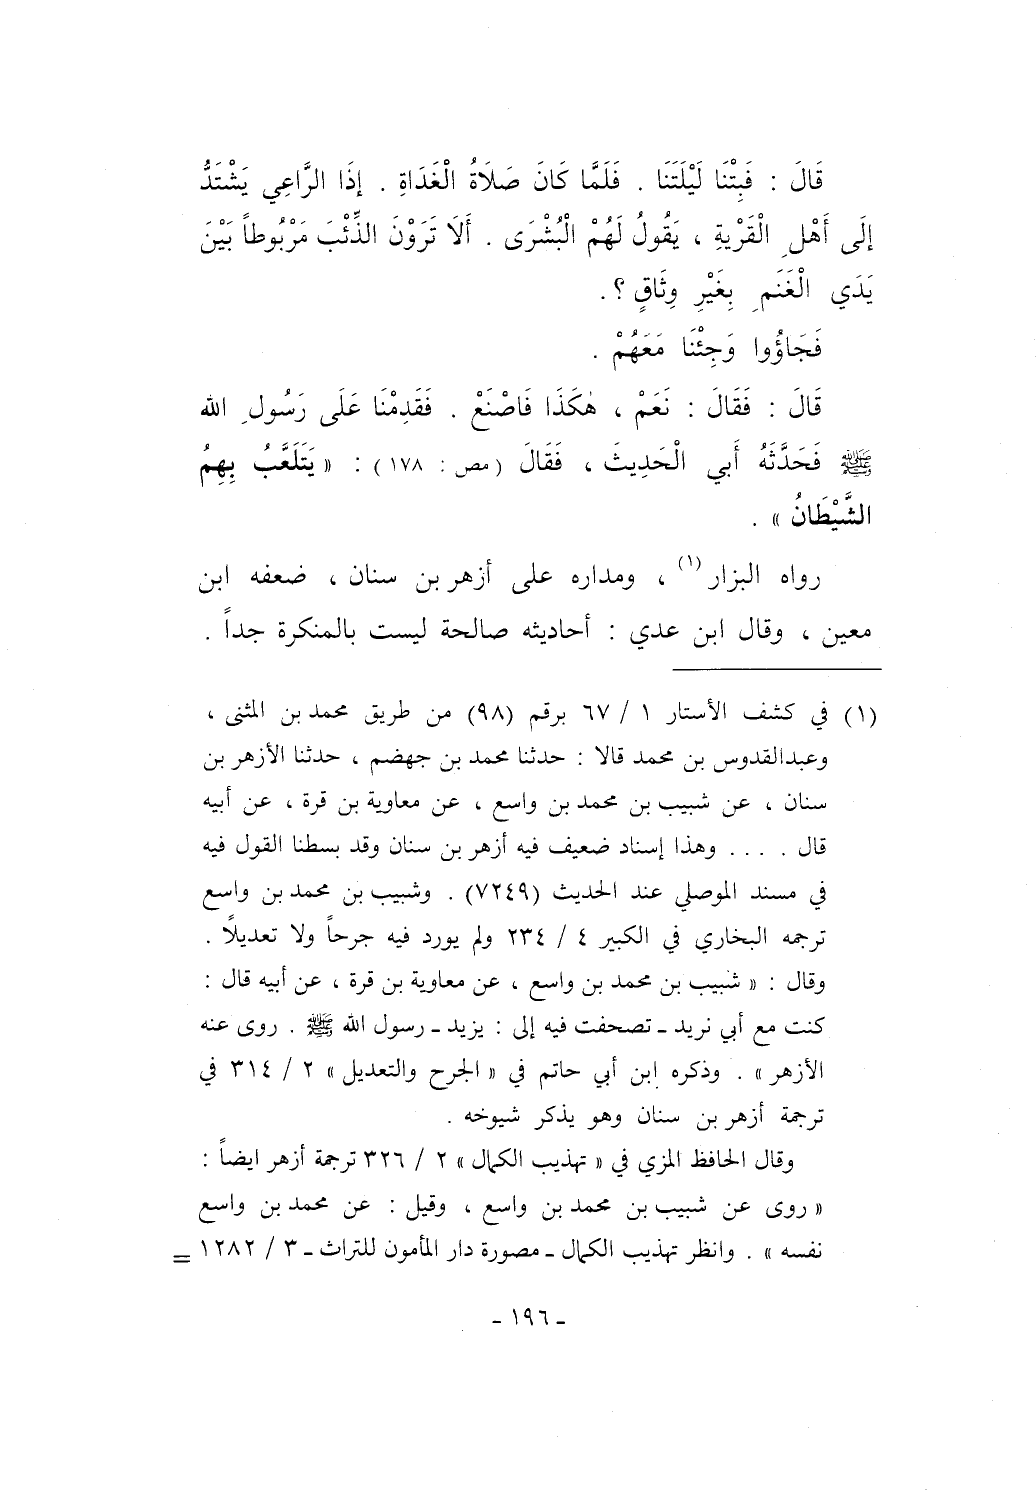 قَالَ : فَبِتْنَا لَيْلَتَنَا . فَلَمَّا كَانَ صَلَاةُ الْغَدَاةِ . إِذَا الرَّاعِي يَشْتَدُّ
إِلَى أَهْلِ الْقَرْيَةِ ، يَقُولُ لَهُمْ الْبُشْرَى . أَلَا تَرَوْنَ الذِّئْبَ مَرْبُوطاً بَيْنَ
يَدَي الْغَنَمِ بِغَيْرِ وِثَاقٍ ؟ .
فَجَاؤُوا وَجِئْنَا مَعَهُمْ .
قَالَ : فَقَالَ : نَعَمْ ، هٰكَذَا فَاصْنَعْ . فَقَدِمْنَا عَلَى رَسُولِ الله
ﷺ فَحَدَّثَهُ أَبِي الْحَدِيثَ ، فَقَالَ ( مص : ١٧٨ ) : « يَتَلَعَّبُ بِهِمُ
الشَّيْطَانُ » .
رواه البزار(١) ، ومداره على أزهر بن سنان ، ضعفه ابن
معين ، وقال ابن عدي : أحاديثه صالحة ليست بالمنكرة جداً .
(١) في كشف الأستار ١ / ٦٧ برقم (٩٨) من طريق محمد بن المثنى ،
وعبدالقدوس بن محمد قالا : حدثنا محمد بن جهضم ، حدثنا الأزهر بن
سنان ، عن شبيب بن محمد بن واسع ، عن معاوية بن قرة ، عن أبيه
قال . . . . وهذا إسناد ضعيف فيه أزهر بن سنان وقد بسطنا القول فيه
في مسند الموصلي عند الحديث (٧٢٤٩) . وشبيب بن محمد بن واسع
ترجمه البخاري في الكبير ٤ / ٢٣٤ ولم يورد فيه جرحاً ولا تعديلاً .
وقال : « شبيب بن محمد بن واسع ، عن معاوية بن قرة ، عن أبيه قال :
كنت مع أبي نريد ـ تصحفت فيه إلى : يزيد ـ رسول الله ﷺ . روى عنه
الأزهر » . وذكره ابن أبي حاتم في « الجرح والتعديل » ٢ / ٣١٤ في
ترجمة أزهر بن سنان وهو يذكر شيوخه .
وقال الحافظ المزي في « تهذيب الكمال » ٢ / ٣٢٦ ترجمة أزهر ايضاً :
« روى عن شبيب بن محمد بن واسع ، وقيل : عن محمد بن واسع
نفسه » . وانظر تهذيب الكمال ـ مصورة دار المأمون للتراث ـ ٣ / ١٢٨٢ =
- ١٩٦ -